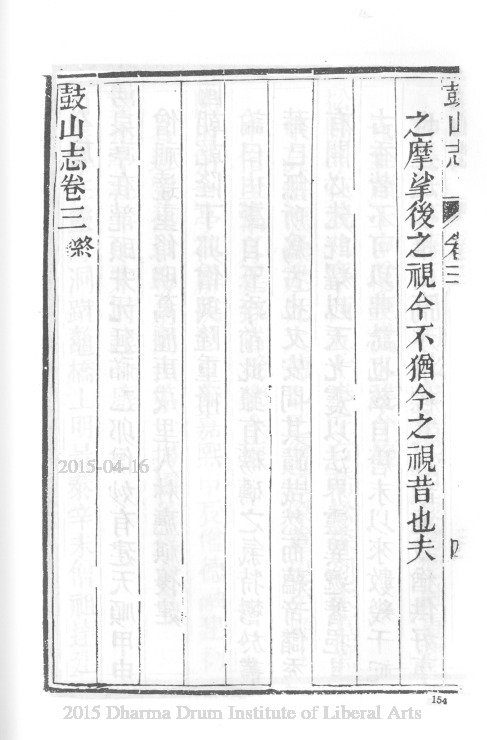 鼓山志 卷三
之摩挲後之視今不猶今之視昔也夫
鼓山志卷三 終
2015-04-16
154
2015 Dharma Drum Institute of Liberal Arts